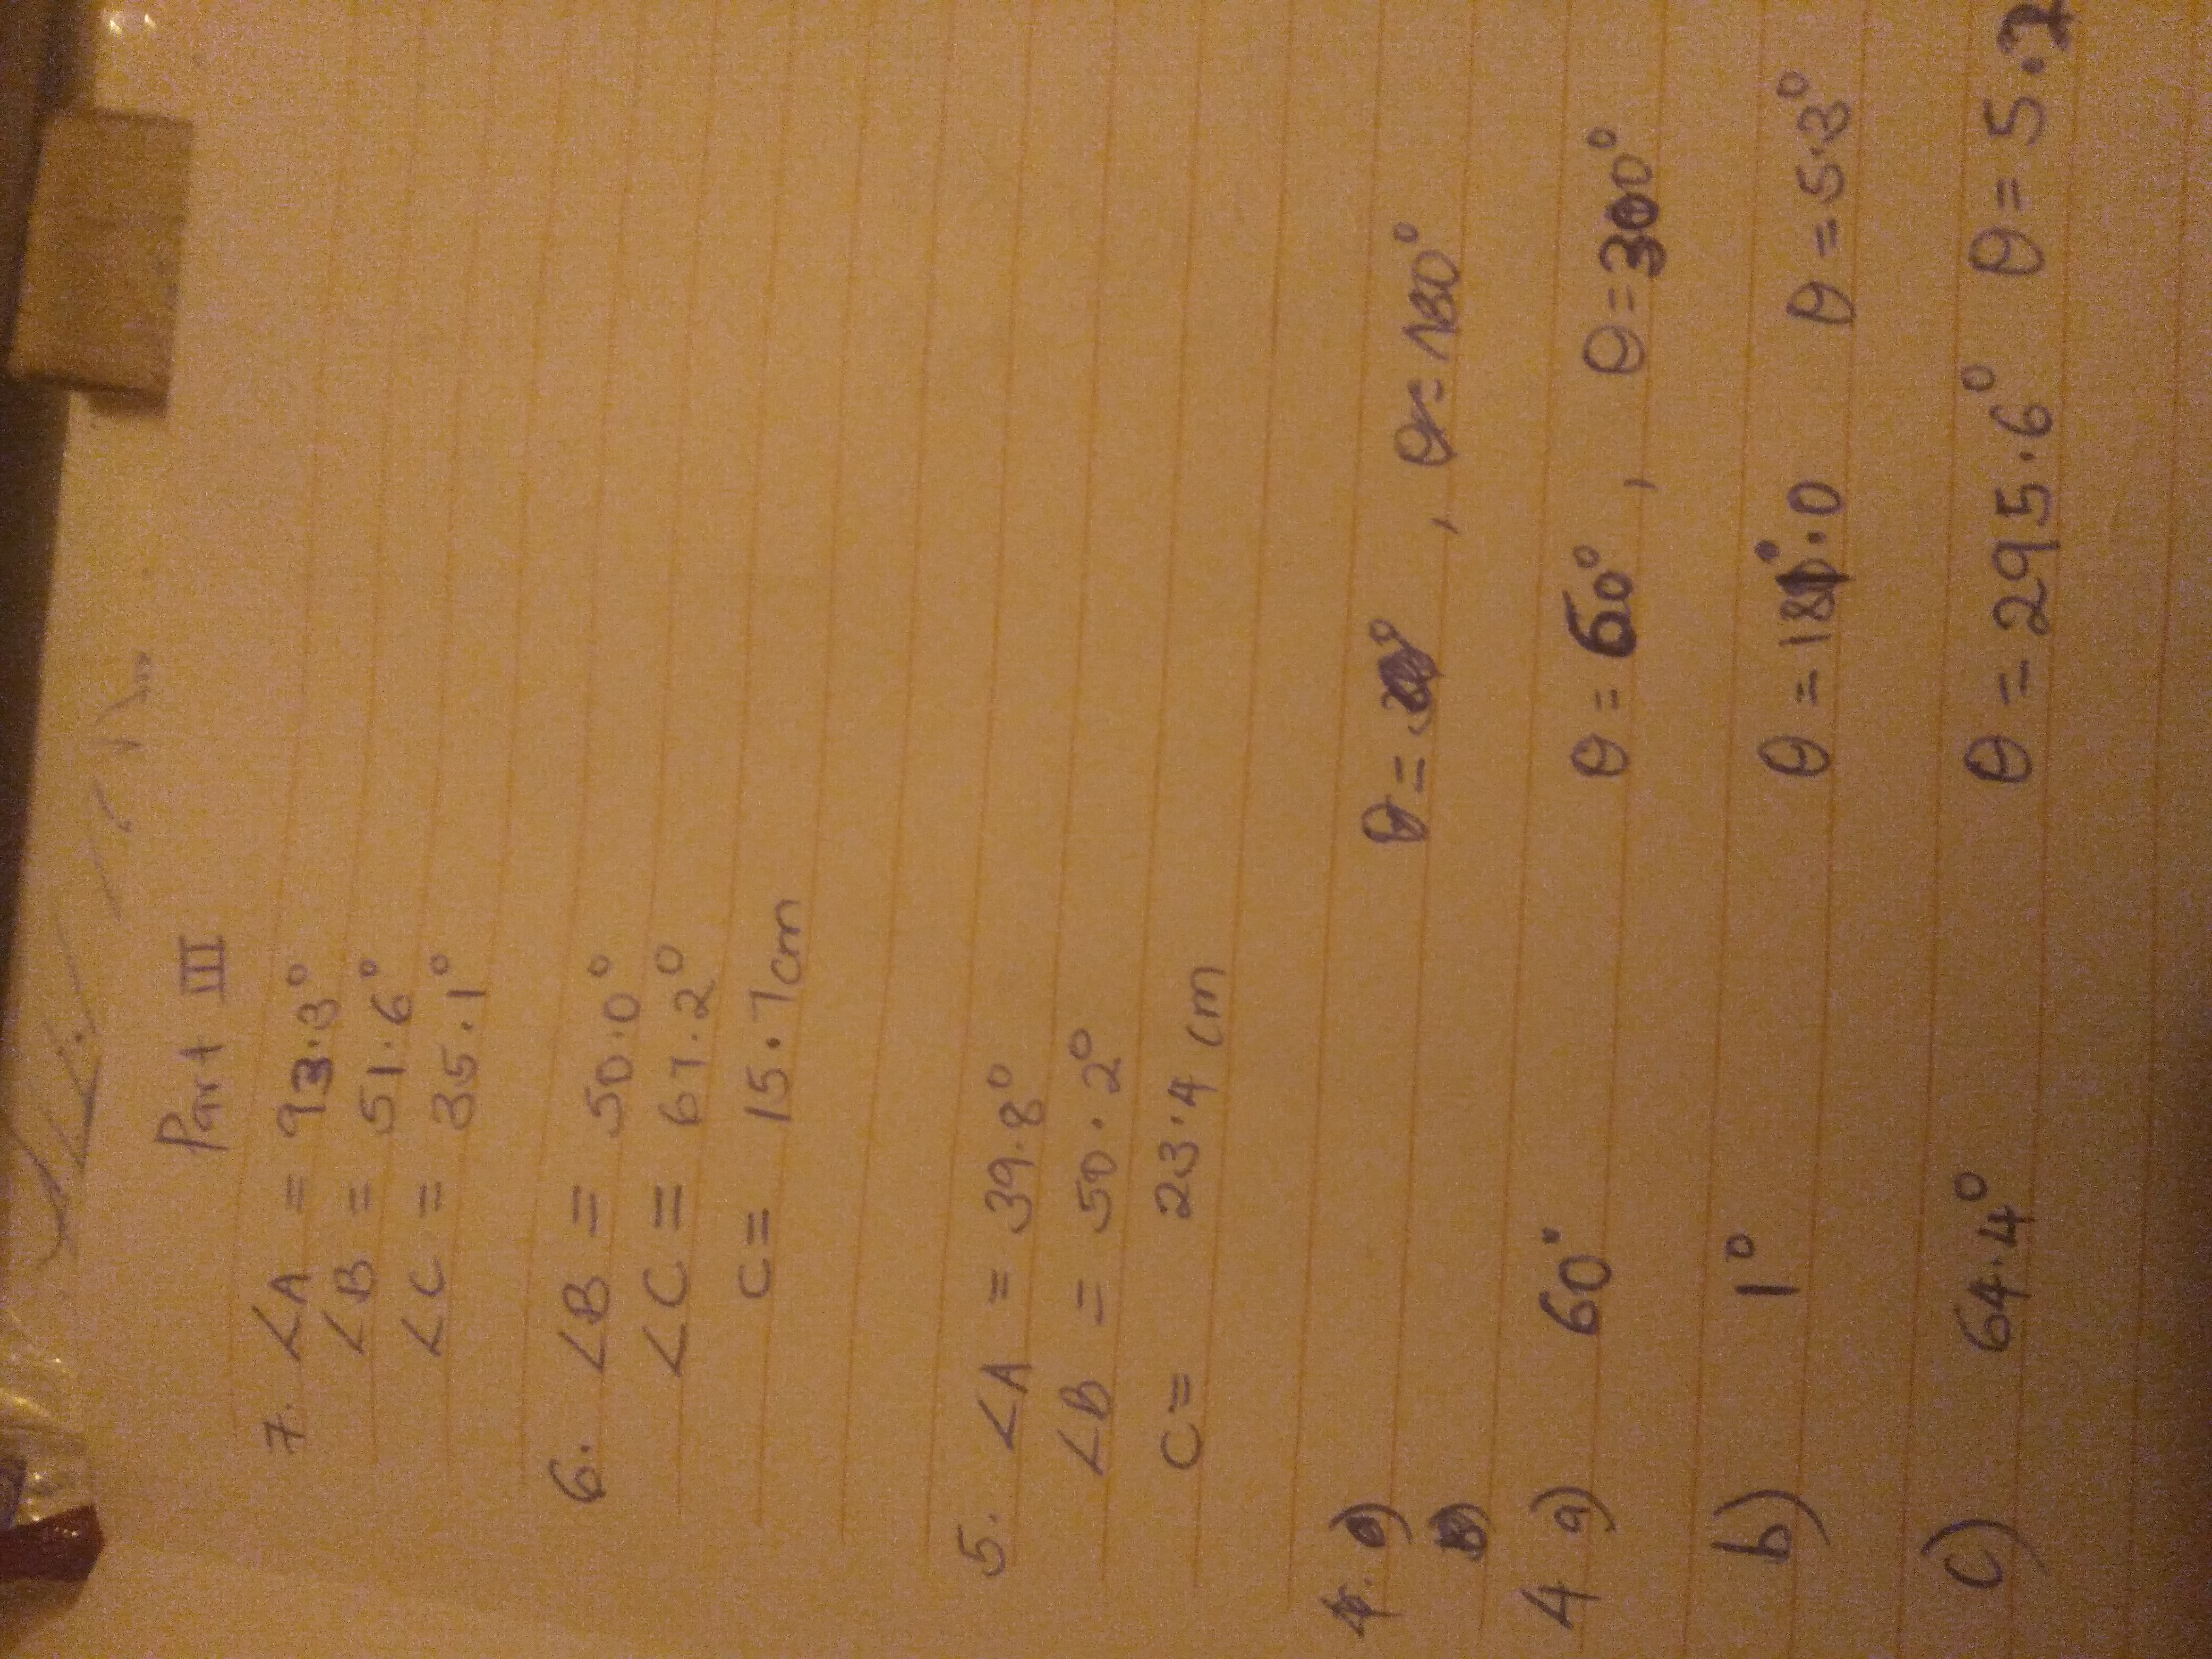 Part III
7. ∠A = 93.3°
∠B = 51.6°
∠C = 35.1°
6. ∠B = 50.0°
∠C = 67.2°
C = 15.7cm
5. ∠A = 39.8°
∠B = 50.2°
C = 23.4 cm
θ = , θ = 180°
4 a) 60° θ = 60°, θ = 300°
b) 1° θ = 181°.0 θ = 5.3°
c) 64.4° θ = 295.6° θ = 5.2